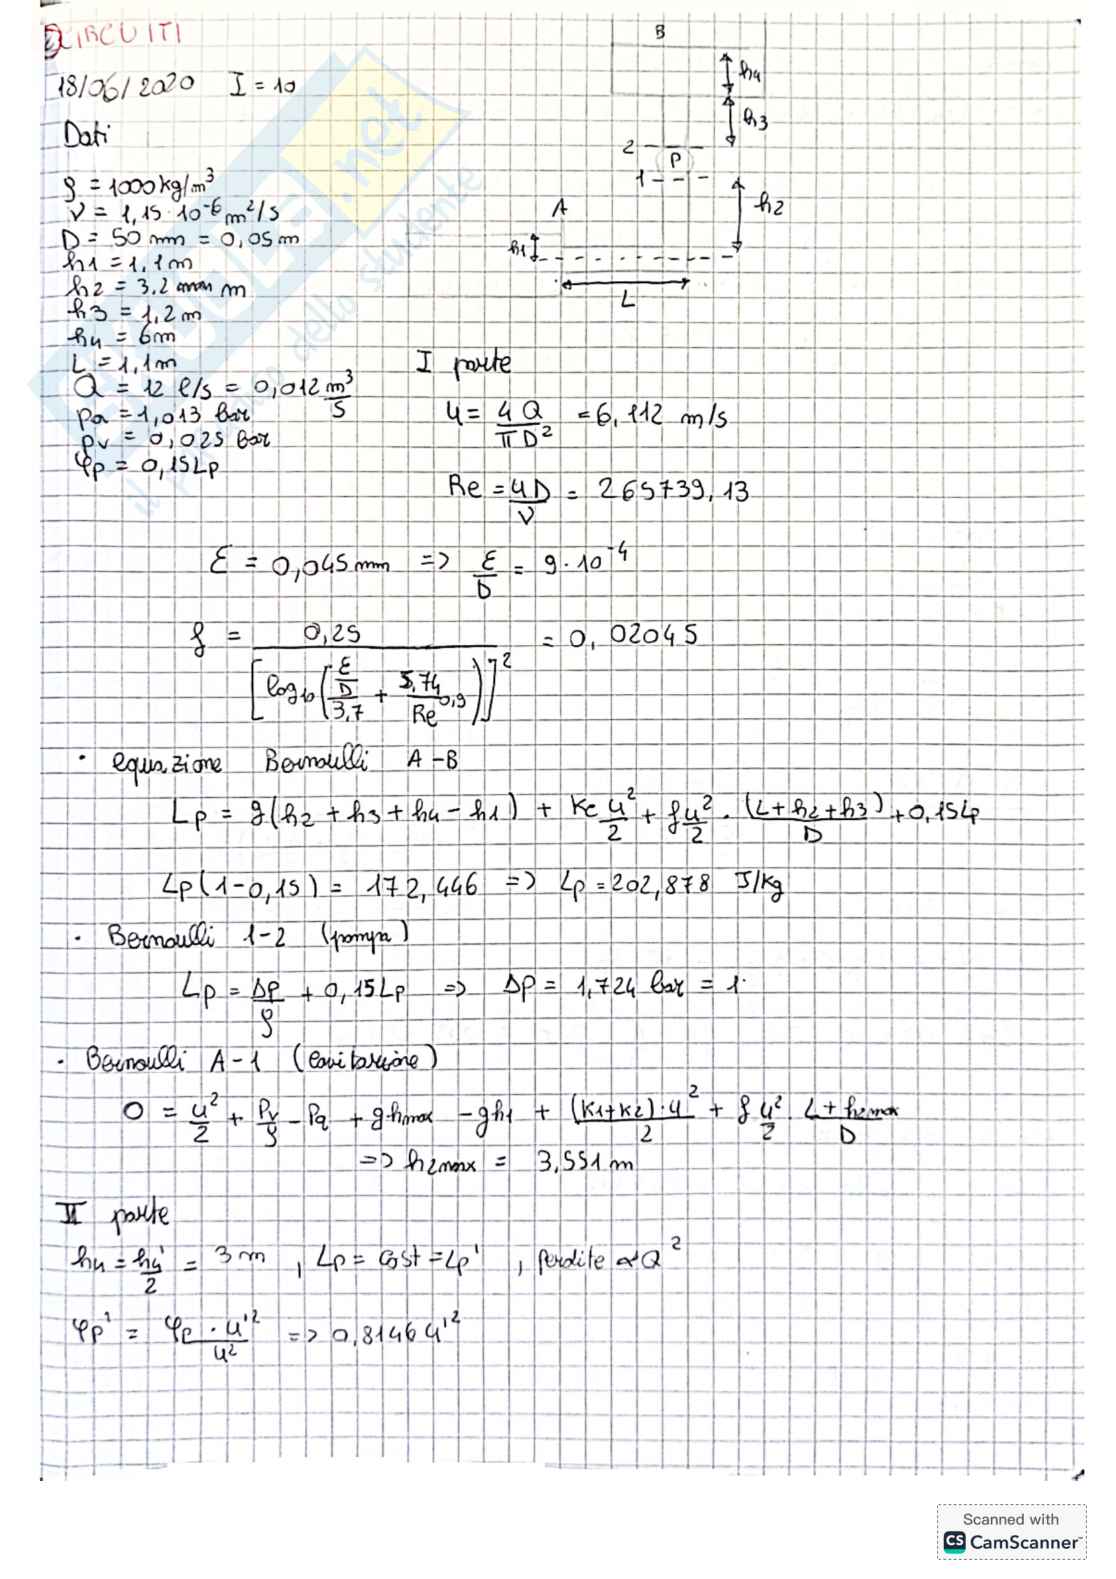 CIRCUITI
18/06/2020 I = 10
Dati
ρ = 1000 kg/m³
ν = 1,15·10⁻⁶ m²/s
D = 50 mm = 0,05 m
h1 = 1,1 m
h2 = 3.2 m
h3 = 1,2 m
h4 = 6m
L = 1,1m
Q = 12 l/s = 0,012 m³/s
pa = 1,013 bar
pv = 0,025 bar
φp = 0,15Lp
B
h4
h3
2
P
1
A
h2
h1
L
I parte
u = 4Q/πD² = 6,112 m/s
Re = uD/ν = 265739,13
ε = 0,045 mm => ε/D = 9·10⁻⁴
f = 0,25/[log₁₀(ε/D/3,7 + 5,74/Re^0,9)]² = 0,02045
· equazione Bernoulli A-B
Lp = g(h2 + h3 + h4 - h1) + Kc u²/2 + f u²/2 · (L+h2+h3)/D + 0,15Lp
Lp(1-0,15) = 172,446 => Lp = 202,878 J/kg
· Bernoulli 1-2 (pompa)
Lp = Δp/ρ + 0,15Lp => Δp = 1,724 bar = 1·
· Bernoulli A-1 (Cavitazione)
0 = u²/2 + Pv/ρ - Pa + ghmax - gh1 + (K1+K2)·u²/2 + f u²/2 · L + h2max/D
=> h2max = 3,551 m
II parte
h4 = h4'/2 = 3 m , Lp = cost = Lp' , perdite ∝ Q²
φp' = φp · u'²/u² => 0,8146 u'²
il
dello studente
.net
Scanned with
CS CamScanner